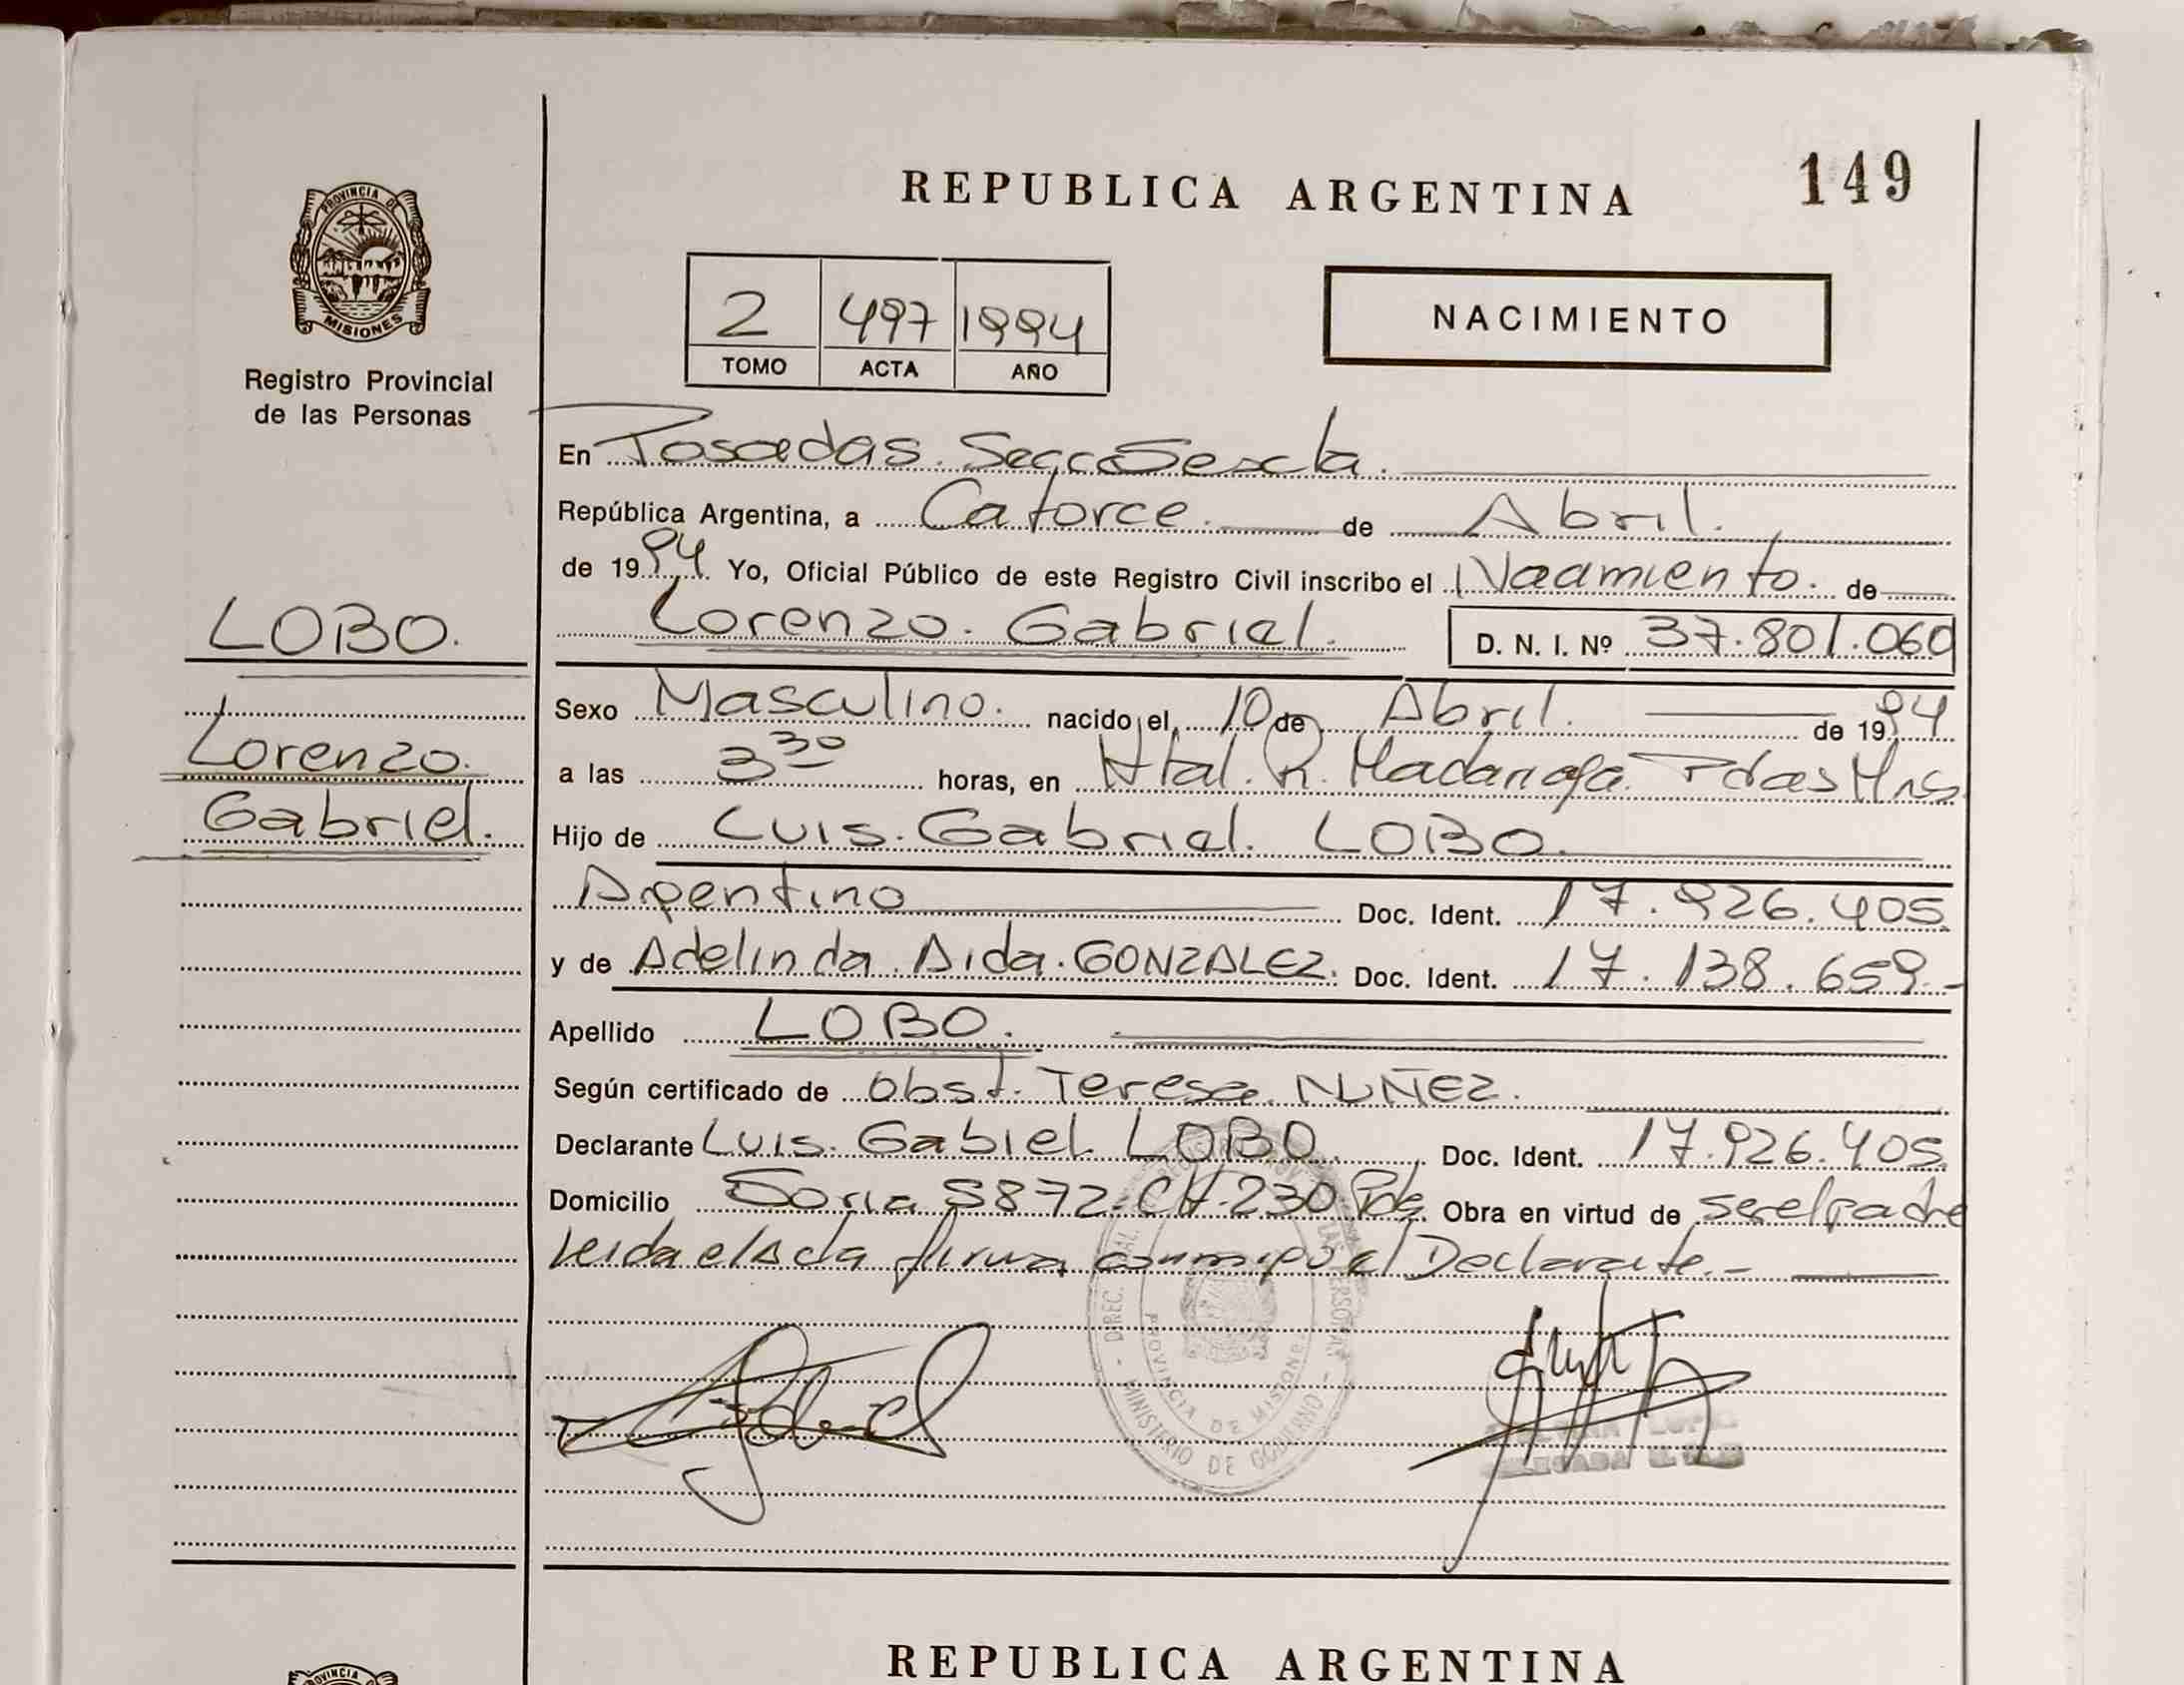 REPUBLICA ARGENTINA
149
PROVINCIA DE
MISIONES
Registro Provincial
de las Personas
2 497 1994
TOMO ACTA AÑO
NACIMIENTO
En Posadas. Secc Sexta.
República Argentina, a Catorce. de Abril.
de 1994 Yo, Oficial Público de este Registro Civil inscribo el Nacimiento. de
Lorenzo. Gabriel. D. N. I. Nº 37.801.060
LOBO.
Lorenzo.
Gabriel.
Sexo Masculino. nacido el 10 de Abril. de 1994
a las 3 30 horas, en Htal. R. Madariaga. Pdas Mns
Hijo de Luis. Gabriel. LOBO.
Argentino Doc. Ident. 17.926.405
y de Adelinda. Aida. GONZALEZ. Doc. Ident. 17.138.659.-
Apellido LOBO.
Según certificado de Obst. Teresa. NUÑEZ.
Declarante Luis. Gabiel. LOBO. Doc. Ident. 17.926.405.
Domicilio Soria S872. CH. 230 Pdas. Obra en virtud de ser el padre
Leida el Acta firma conmigo el Declarante.-
MINISTERIO DE GOBIERNO
PROVINCIA DE MISIONES
REPUBLICA ARGENTINA
PROVINCIA